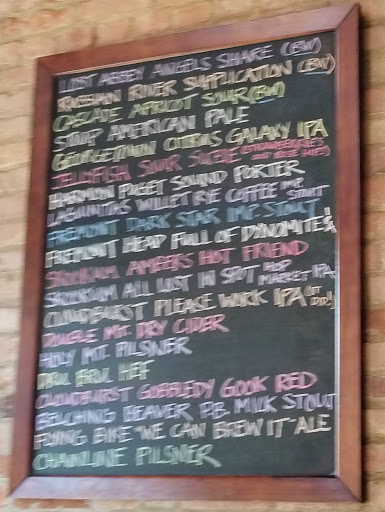 LOST ABBEY ANGELS SHARE (BW)
RUSSIAN RIVER SUPPLICATION (BW)
CASCADE APRICOT SOUR (BW)
STOUP AMERICAN PALE
GEORGETOWN CITRUS GALAXY IPA
JELLYFISH SOUR SUZIE (STRAWBERRIES AND ROSE HIPS)
HARMON PUGET SOUND PORTER
LAGUNITAS WILLET RYE COFFEE IMP. STOUT
FREMONT DARK STAR IMP. STOUT
FREMONT HEAD FULL OF DYNOMITE
SKOOKUM AMBERS HOT FRIEND
SKOOKUM ALL LUST IN SPOT HOP MARKET IPA
CLOUDBURST PLEASE WORK IPA (IT DID!)
DOUBLE MT. DRY CIDER
HOLY MT. PILSNER
DRU BRU HEF
CLOUDBURST GOBBLEDY GOOK RED
BELCHING BEAVER P.B. MILK STOUT
FLYING BIKE "WE CAN BREW IT" ALE
CHAINLINE PILSNER